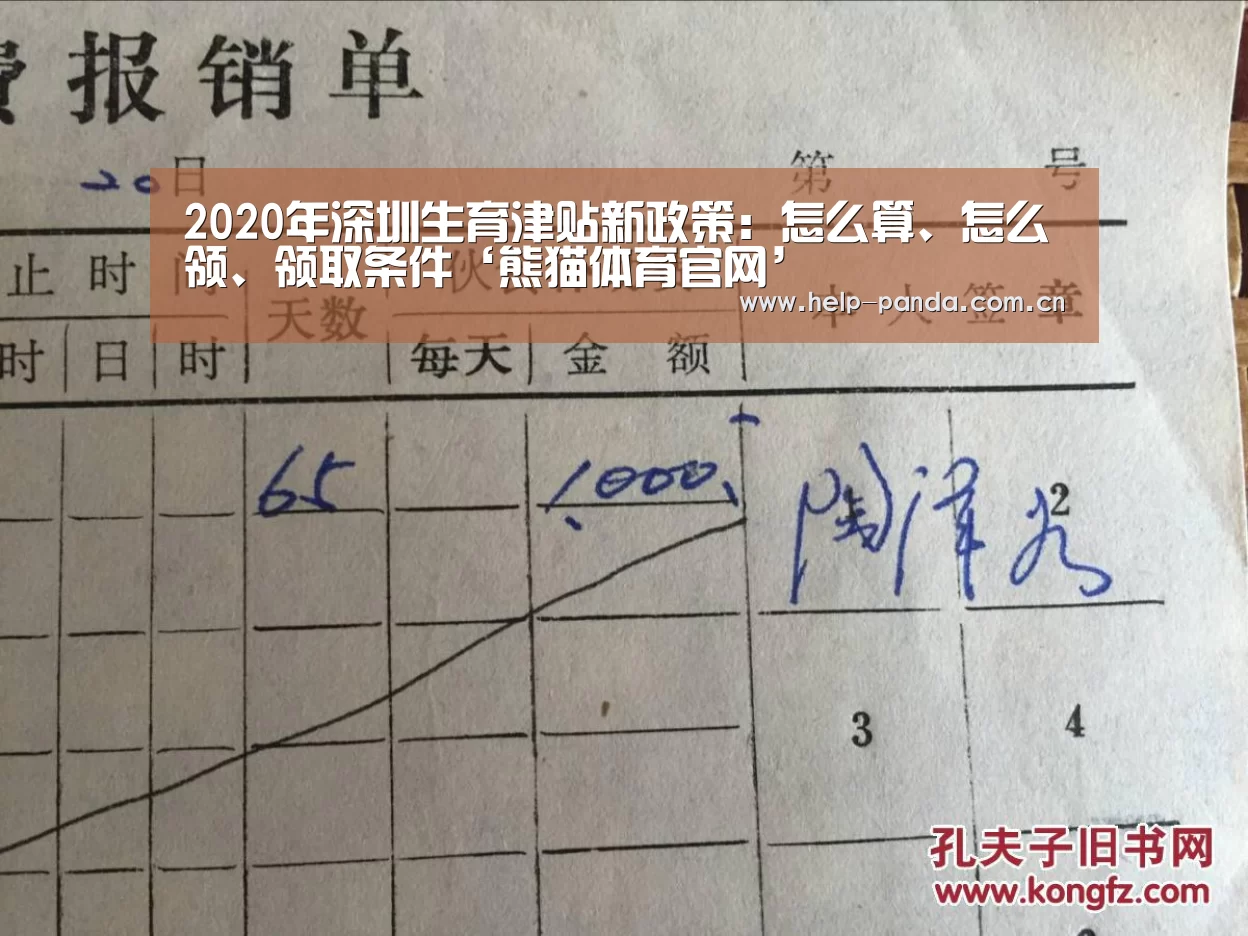 费报销单
20日 第 号
2020年深圳生育津贴新政策：怎么算、怎么
领、领取条件‘熊猫体育官网’
www.help-panda.com.cn
止时间
天数
本人签章
时 日 时 每天 金额
65 1000
2
3 4
孔夫子旧书网
www.kongfz.com